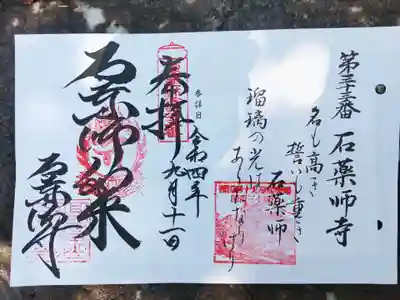 第三十三番 石薬師寺
名も高き
誓いも重き
石薬師
瑠璃の光は
あらたなりけり
参拝日
令和四年
九月十一日
奉拝
石薬師如来
石薬師寺